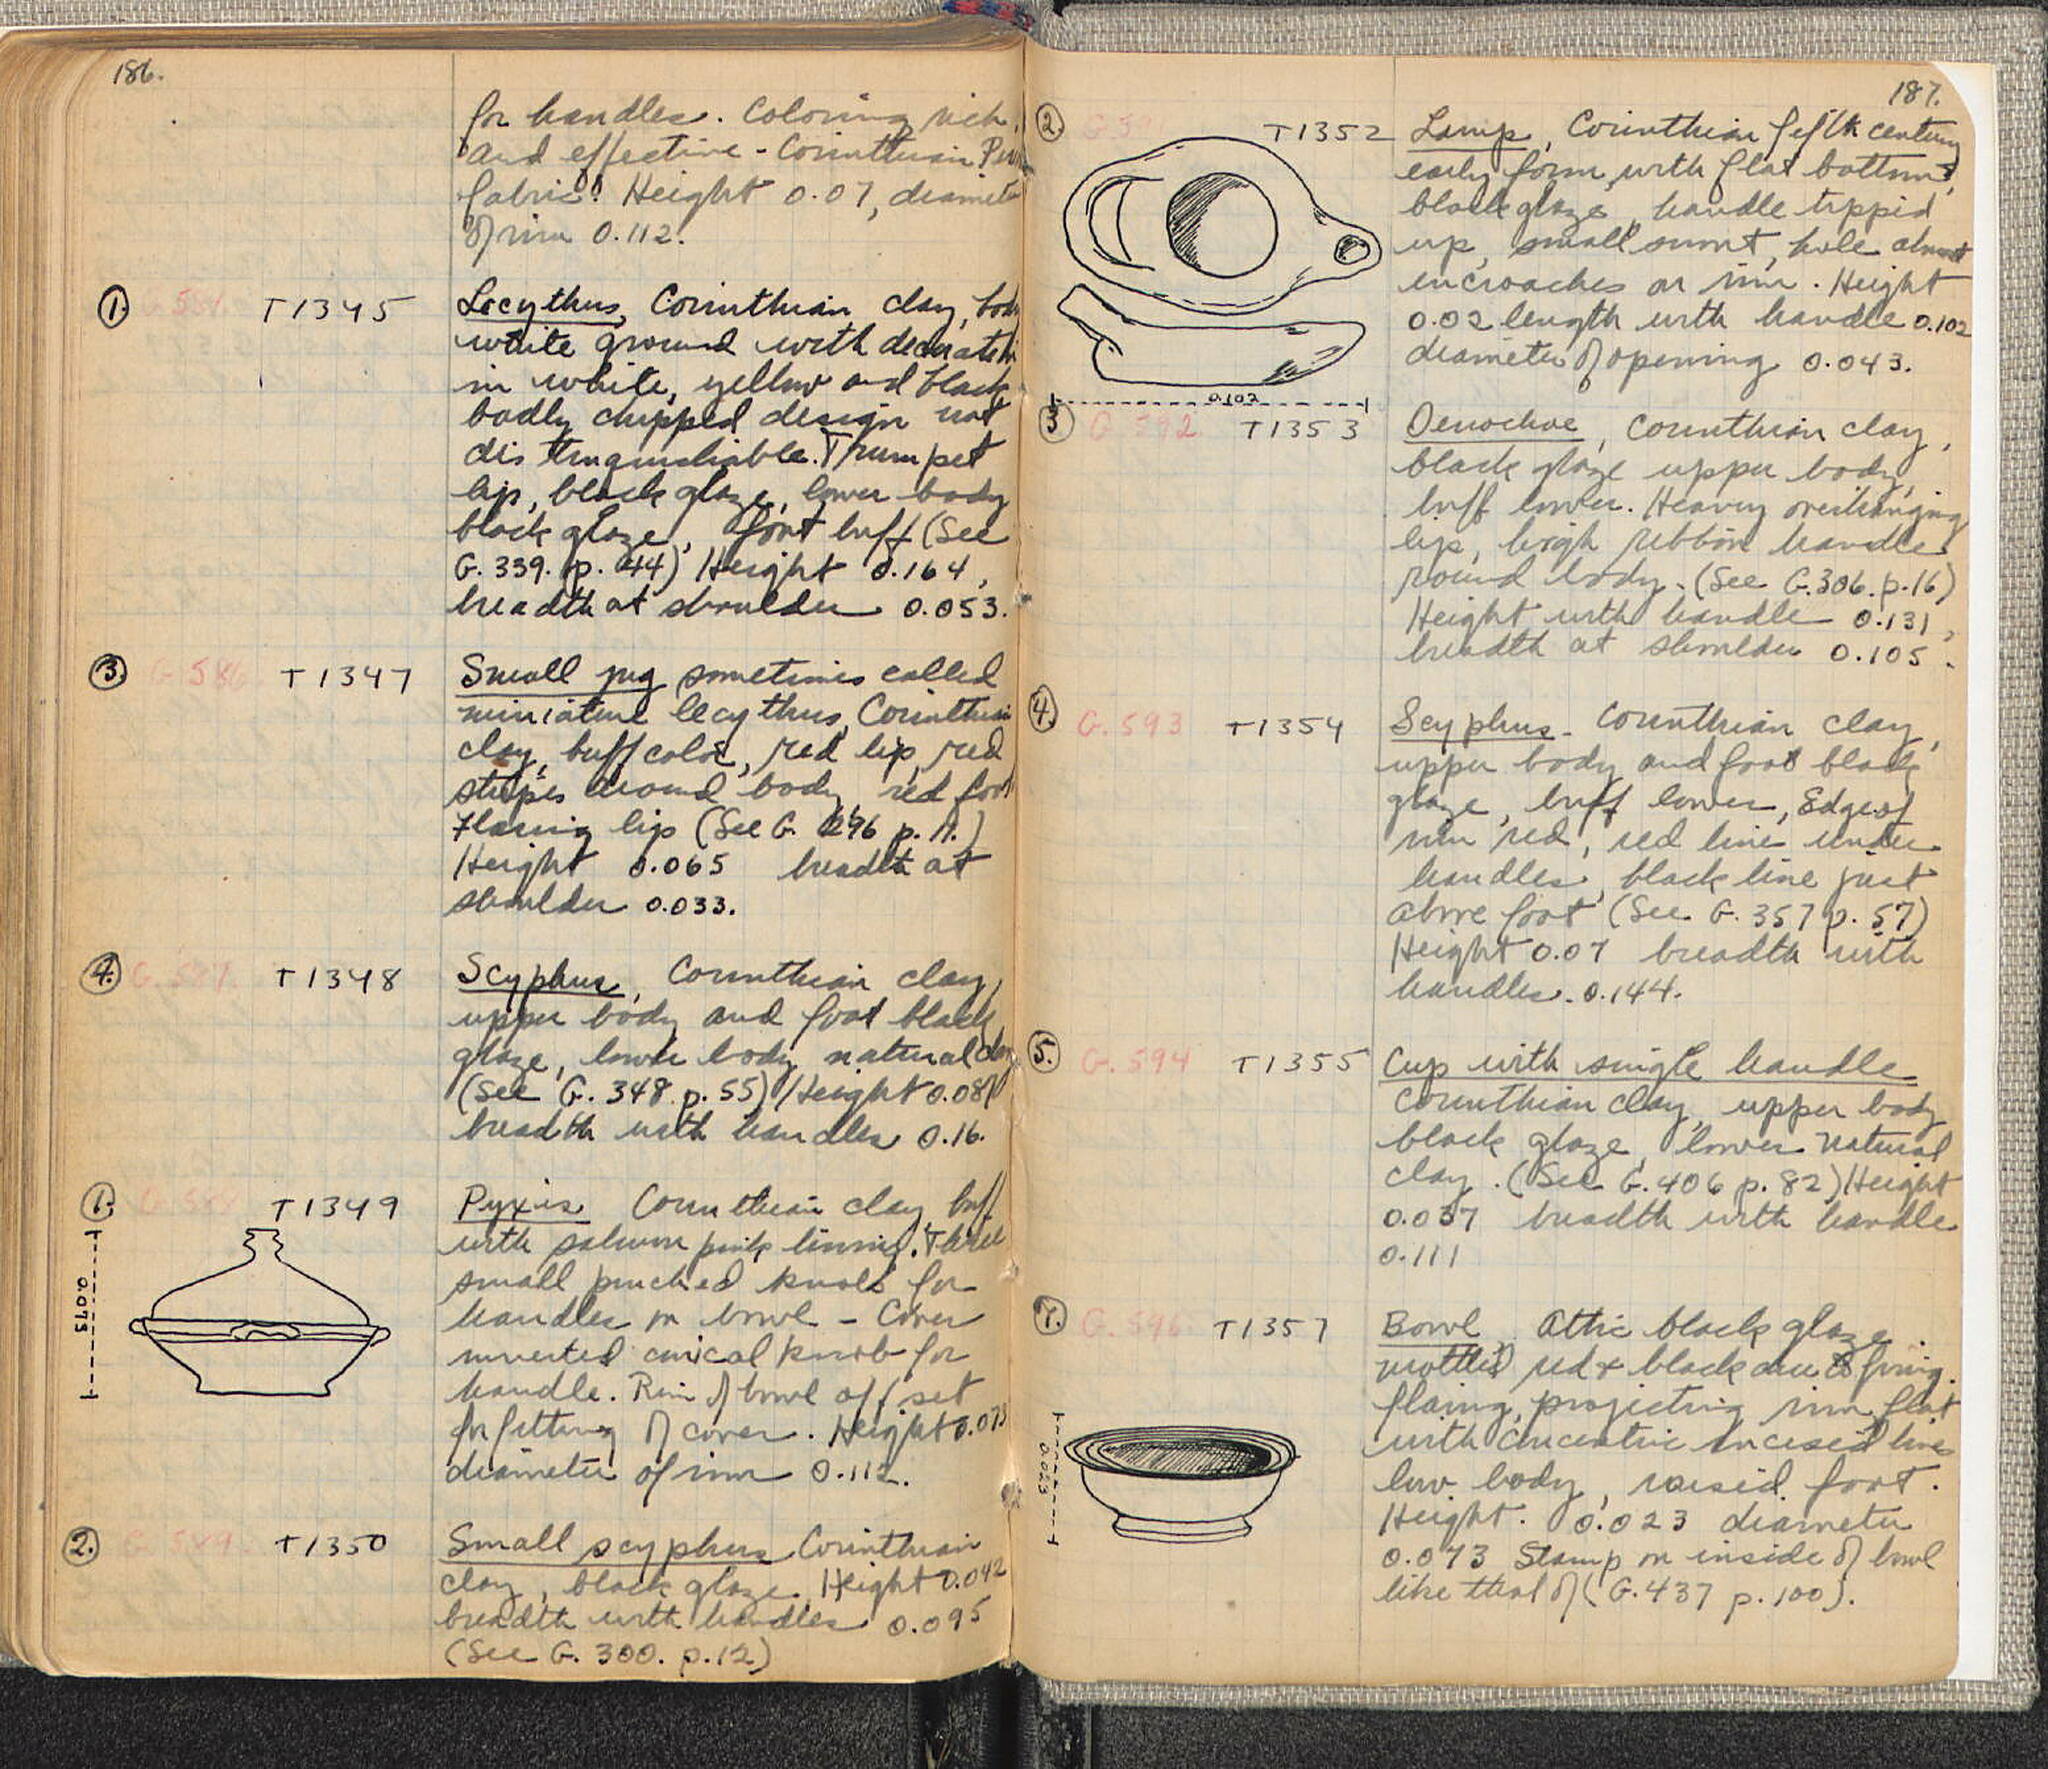 186.
for handles. Coloring rich,
and effective - Corinthian
fabric. Height 0.07, diameter
of rim 0.112.
1. G 584. T1345 Lecythus, Corinthian clay, body
white ground with decoration
in white, yellow and black
badly chipped design not
distinguishable. Trumpet
lip, black glaze, lower body
black glaze, foot buff (See
G. 339. p. 44) Height 0.164,
breadth at shoulder 0.053.
3. G 586. T1347 Small jug sometimes called
miniature lecythus, Corinthian
clay, buff color, red lip, red
stripes around body, red foot
Flaring lip (See G. 296 p. 11.)
Height 0.065 breadth at
shoulder 0.033.
4. G. 587. T1348 Scyphus, Corinthian clay,
upper body and foot black
glaze, lower body natural clay
(See G. 348 p. 55) Height 0.081
breadth with handles 0.16.
1. G 588 T1349 Pyxis Corinthian clay, buff
with salmon pink lining. Three
small pinched knobs for
handles on bowl - Cover
inverted conical knob for
handle. Rim of bowl off set
for fitting of cover. Height 0.073
diameter of rim 0.112.
0.073
2. G 589. T1350 Small scyphus Corinthian
clay, black glaze. Height 0.042
breadth with handles 0.095
(See G. 300. p. 12)
187.
2. G 591 T1352 Lamp, Corinthian fifth century
early form, with flat bottom,
black glaze, handle tipped
up, small snout, hole almost
encroaches on rim. Height
0.02 length with handle 0.102
diameter of opening 0.043.
0.102
3 G 592 T1353 Oenochoe, Corinthian clay,
black glaze upper body,
buff lower. Heavy overhanging
lip, high ribbon handle
round body. (See G. 306. p. 16)
Height with handle 0.131,
breadth at shoulder 0.105.
4. G. 593 T1354 Scyphus - Corinthian clay,
upper body and foot black
glaze, buff lower, Edge of
rim red, red line under
handles, black line just
above foot (See G. 357 p. 57)
Height 0.07 breadth with
handles. 0.144.
5. G. 594 T1355 Cup with single handle
Corinthian clay, upper body
black glaze, lower natural
clay. (See G. 406 p. 82) Height
0.037 breadth with handle
0.111
7. G. 596. T1357 Bowl, Attic black glaze.
mottled red + black due to firing.
flaring, projecting rim, flat
with concentric incised lines
low body, raised foot.
Height. 0.023 diameter
0.073 Stamp on inside of bowl
like that of (G. 437 p. 100).
0.023